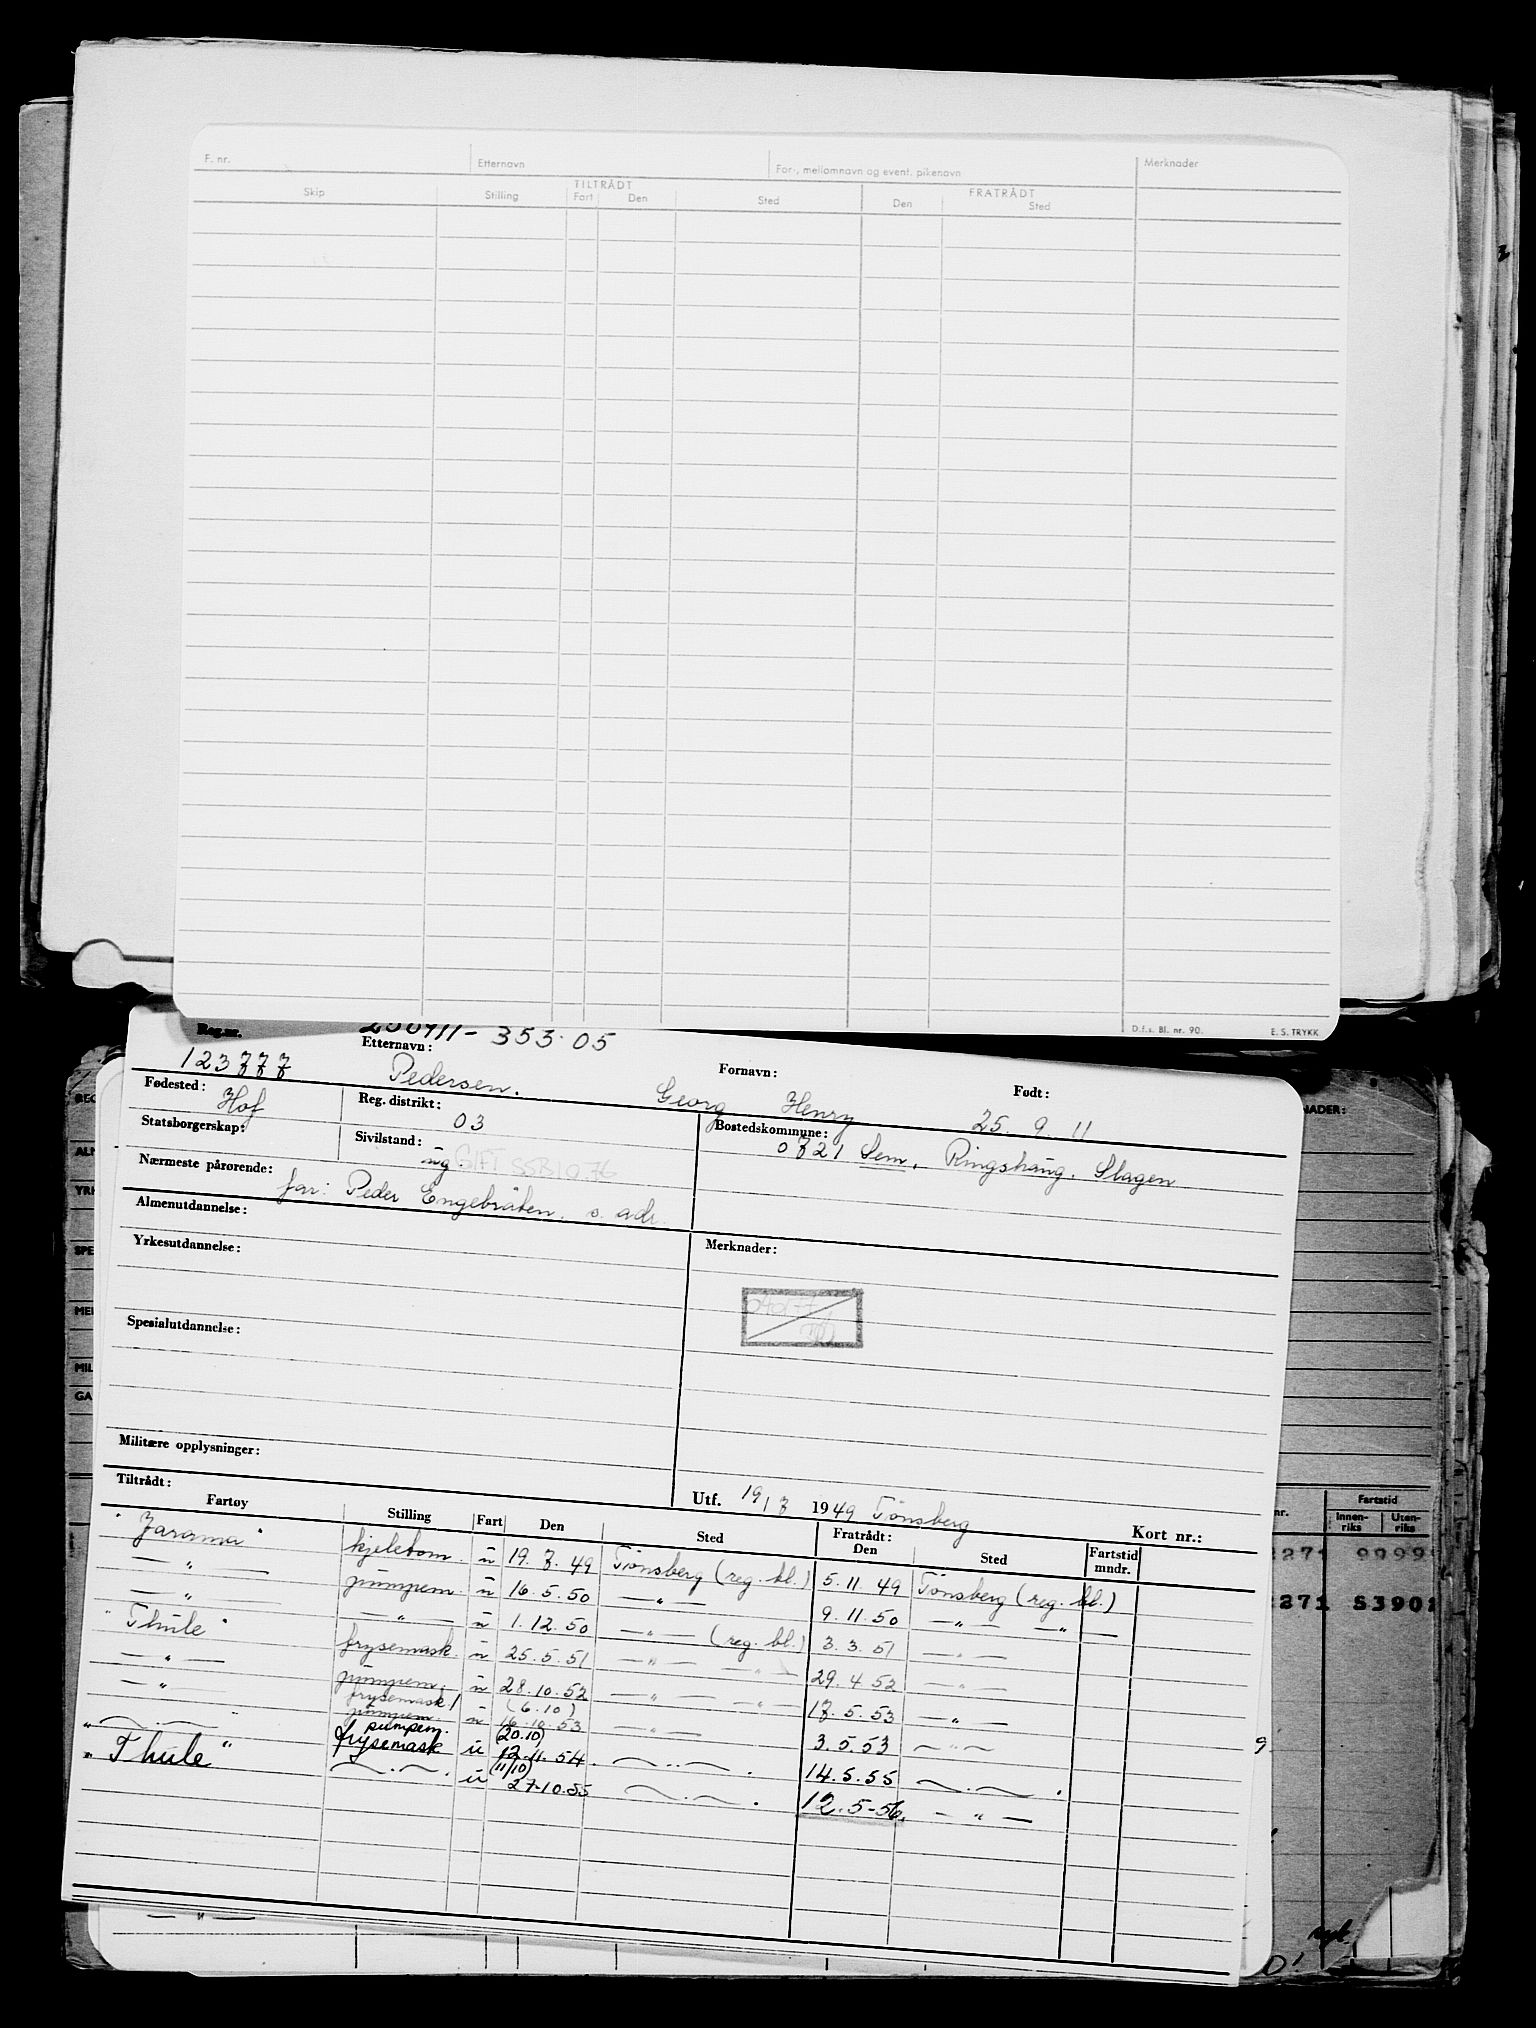 F. nr. Etternavn For-, mellomnavn og event. pikenavn Merknader
TILTRÅDT FRATRÅDT
Skip Stilling Fart Den Sted Den Sted
D.f.s. Bl. nr. 90. E. S. TRYKK
Reg.nr. 250911-353.05
123777 Etternavn: Pedersen. Fornavn: Georg Henry Født: 25.9.11
Fødested: Hof Reg. distrikt: 03 Bostedskommune: 0721 Sem, Ringshaug, Slagen
Statsborgerskap: Sivilstand: ug. GIFT
Nærmeste pårørende: far: Peder Engebråten, s. adr
Almenutdannelse:
Yrkesutdannelse: Merknader:
Spesialutdannelse:
Militære opplysninger:
Tiltrådt: Utf. 19/7 1949 Tønsberg Kort nr.:
Fartøy Stilling Fart Den Sted Fratrådt: Den Sted Fartstid mndr.
"Jarama" kjelebom. u 19.7.49 Tønsberg (reg. bl.) 5.11.49 Tønsberg (reg. bl.)
— " — pumpem. u 16.5.50 — " — 9.11.50 — " — — " —
— " — — " — u 1.12.50 — " — (reg. bl.) 3.3.51 — " —
"Thule" frysemask. u 25.5.51 — " — — " — 29.4.52 — " —
— " — pumpem. u 28.10.52 — " — — " — 17.5.53 — " —
— " — frysemask/ pumpem. u (6.10) 16.10.53 — " — 3.5.53 — " —
" — . — pumpem. frysemask u (20.10) 12.11.54 — .. — . 14.5.55 — . — .
"Thule" — . — . u (11/10) 27-10.55 — . — . 12.5-56. — " —
9
NADER:
nr. Fartstid
Innen-riks Uten-riks
271 9999
271 S390
— " —